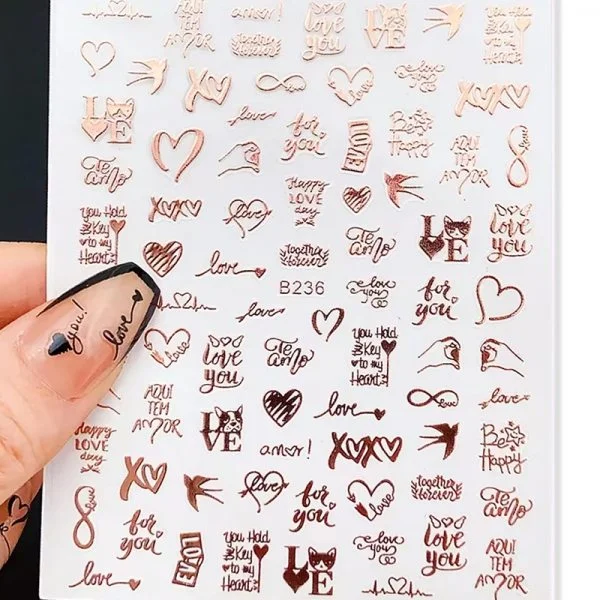 AQUI
TEM
AMOR
amor!
together
forever
love
you
LOVE
You Hold
The Key
to my
Heart
XOXO
love
love
you
XOXO
LOVE
love
for
you
LOVE
Be
Happy
AQUI
TEM
AMOR
love
Te
amo
Happy
LOVE
day
You Hold
The Key
to my
Heart
XOXO
love
together
forever
Te
amo
LOVE
love
you
love
B236
love
you
for
you
you!
love
love
love
love
you
Te
amo
You Hold
The Key
to my
Heart
love
love
AQUI
TEM
AMOR
LOVE
amor!
love
XOXO
Be
Happy
Happy
LOVE
day
XO
love
for
you
love
together
forever
Te
amo
love
for
you
love
LOVE
You Hold
The Key
to my
Heart
LOVE
love
you
love
you
AQUI
TEM
AMOR